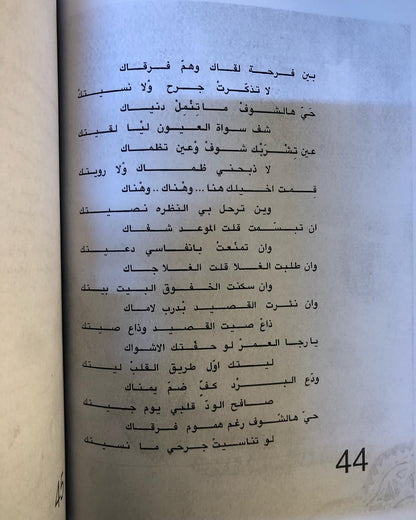 بين فرحة لقاك وهمّ فرقاك
لا تذكّرتْ جرح وْلا نسيتك
حَيّ هالشوفْ ماتِنْمِلّ دنياك
شف سواة العيون ليْا لقيتك
عين تشْربك شوفْ وْعين تظماك
لا ذبحني ظماك وْلا رويتك
قمت اخيلك هنا... وهْناك.. وهْناك
وين ترحل بي النظره نصيتك
ان تبسّمت قلت الموعد شفاك
وان تمنّعتْ بانفاسي دعيتك
وان طلبت الغلا قلت الغلا جاك
وان سكنت الخفوق البيت بيتك
وان نثرت القصيد بْدرب لاماك
ذاعْ صيت القصيد وذاع صيتك
يارجا العمرْ لو حفّتك الاشواك
ليتك اوّل طريق القلبْ ليتك
ودّع البرْد كفٍّ ضمّ يمناك
صافح الودّ قلبي يوم جيتك
حيّ هالشّوف رغم هموم فرقاك
لو تناسيتْ جرحي ما نسيتك
44
45